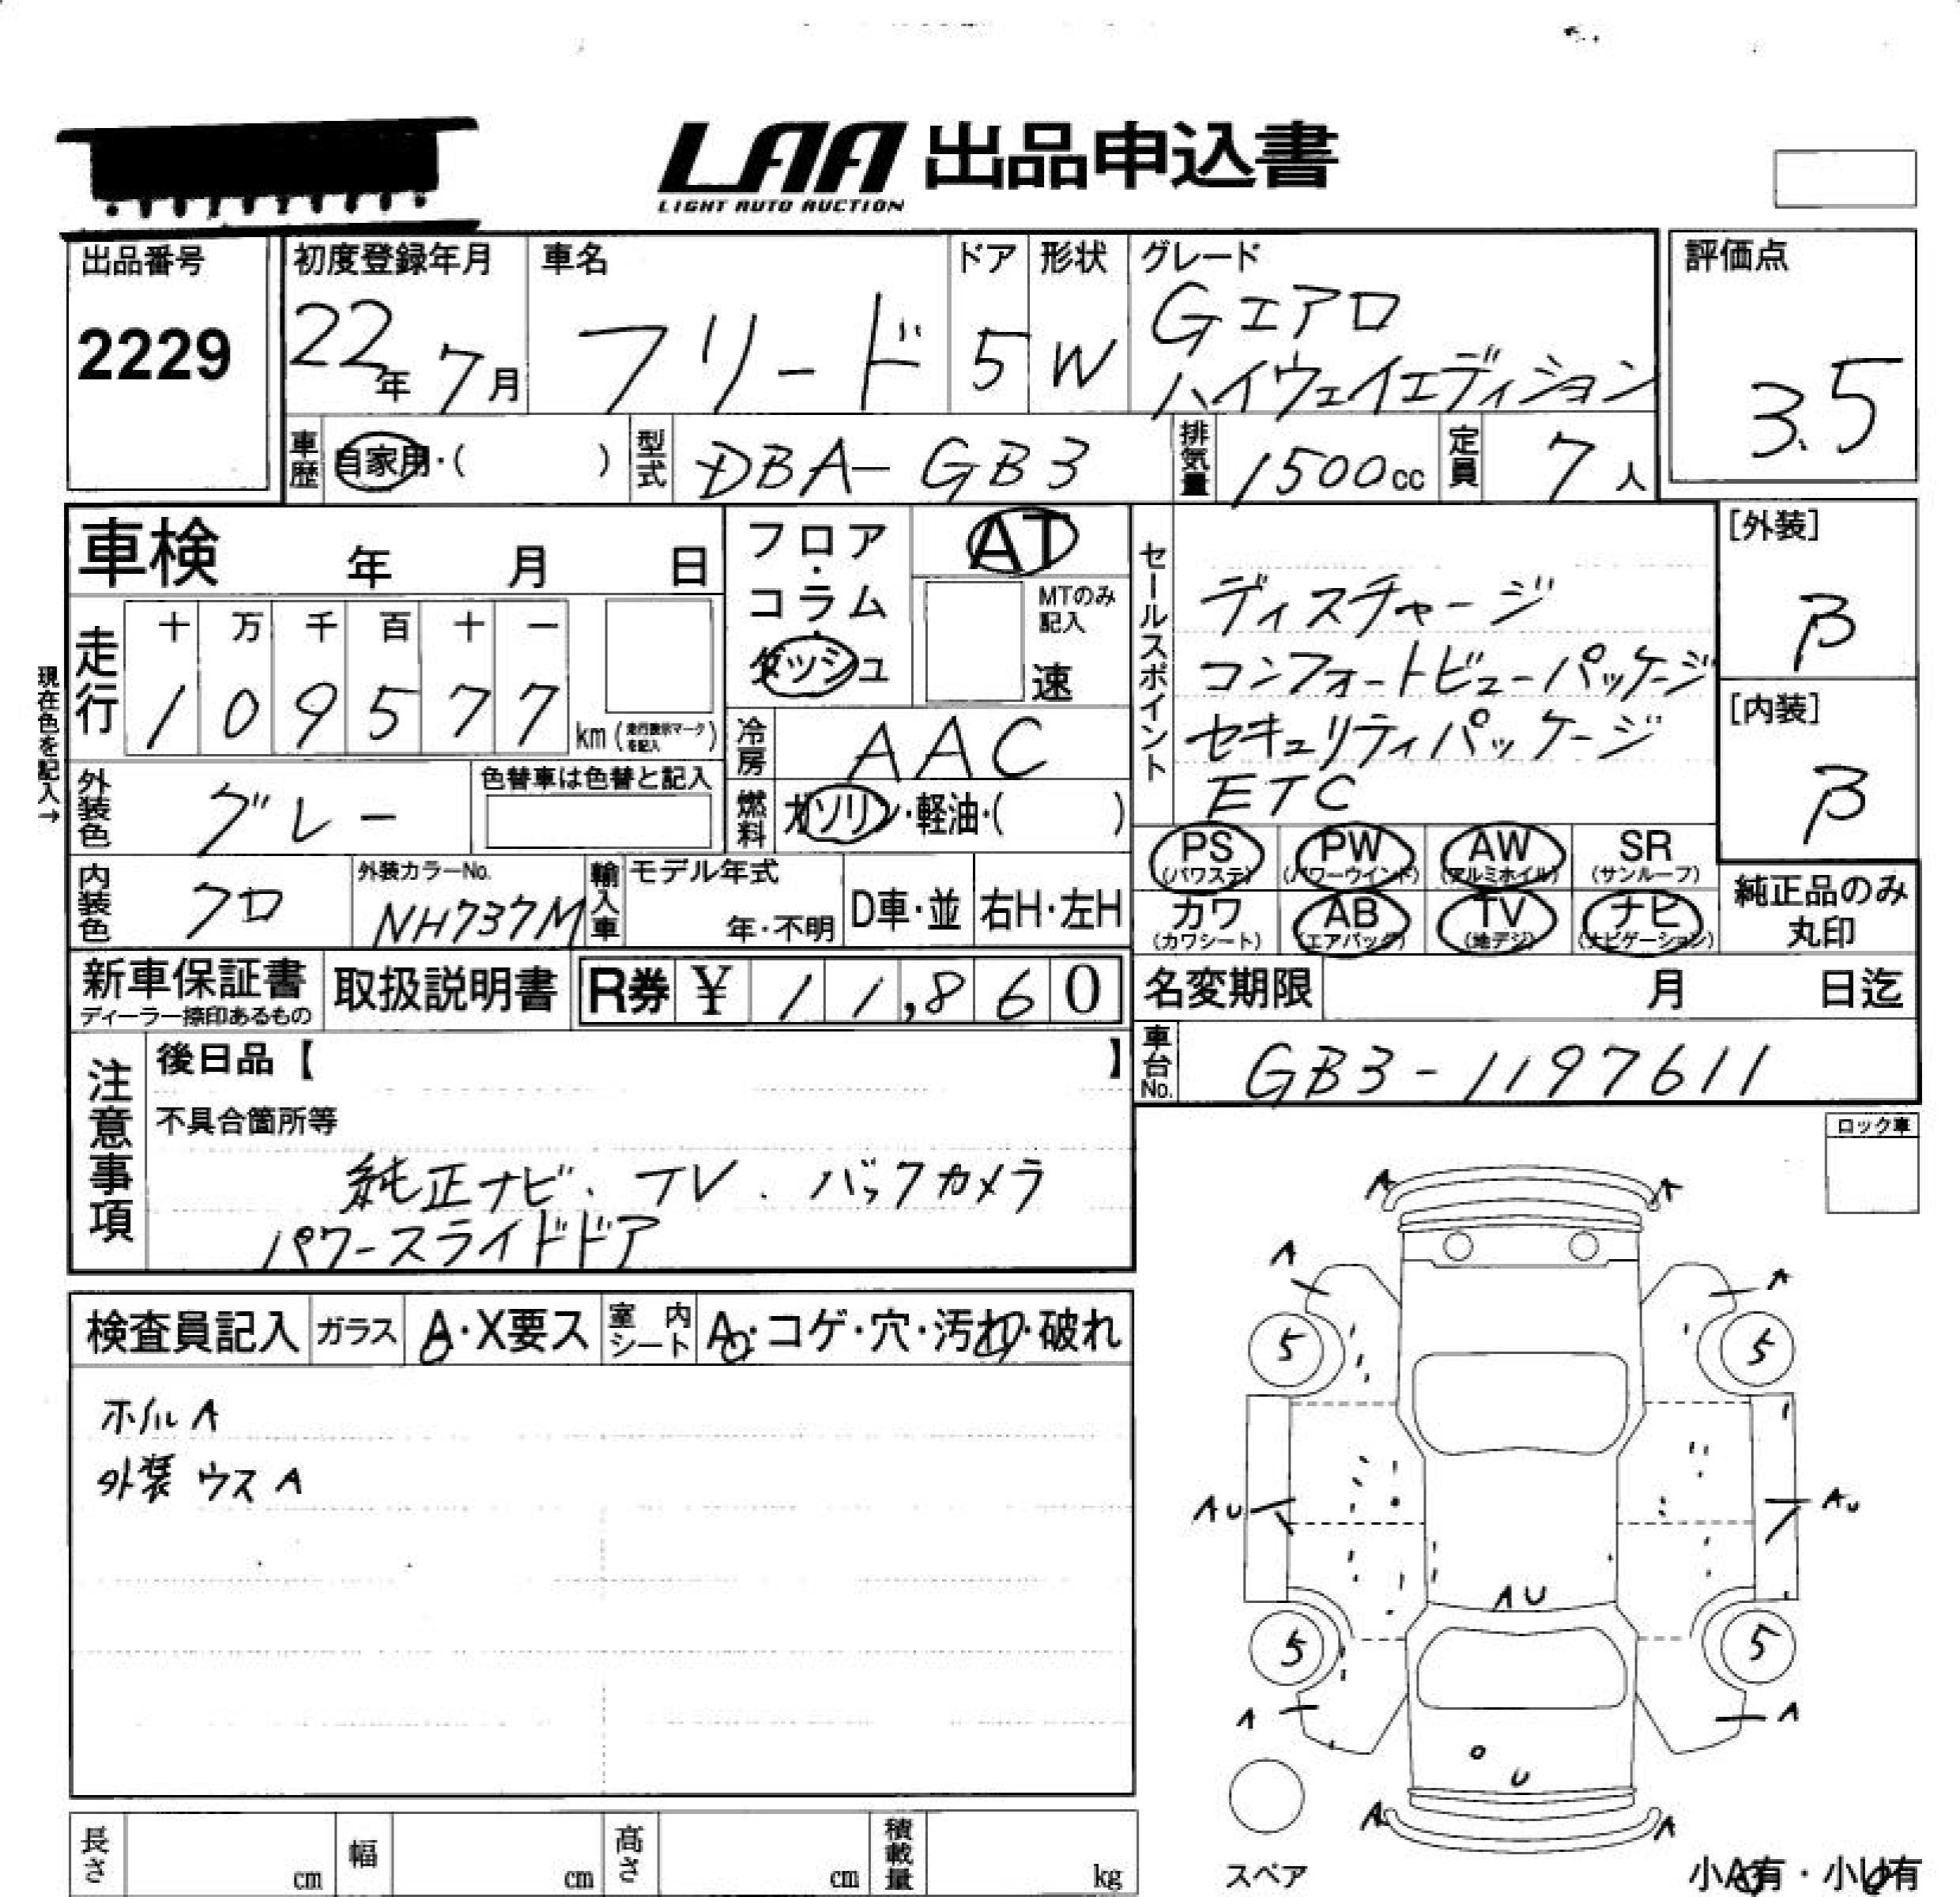 LAA 出品申込書
LIGHT AUTO AUCTION
出品番号
2229
初度登録年月
22年 7月
車名
フリード
ドア
5
形状
W
グレード
Gエアロ
ハイウェイエディション
評価点
3.5
車歴
自家用・( )
型式
DBA-GB3
排気量
1500cc
定員
7人
車検 年 月 日
フロア
・
コラム
・
ダッシュ
AT
MTのみ
記入
速
セールスポイント
ディスチャージ
コンフォートビューパッケージ
セキュリティパッケージ
ETC
[外装]
β
[内装]
β
現在色を記入→
走行
十 万 千 百 十 一
1 0 9 5 7 7
km(走行表示マークを記入)
冷房
AAC
外装色
グレー
色替車は色替と記入
燃料
ガソリン・軽油・( )
PS
(パワステ)
PW
(パワーウインド)
AW
(アルミホイル)
SR
(サンルーフ)
カワ
(カワシート)
AB
(エアバッグ)
TV
(地デジ)
ナビ
(ナビゲーション)
純正品のみ
丸印
内装色
クロ
外装カラーNo.
NH737M
輸入車
モデル年式
年・不明
D車・並
右H・左H
新車保証書
ディーラー捺印あるもの
取扱説明書
R券 ¥ 11,860
名変期限 月 日迄
車台No.
GB3-1197611
注意事項
後日品【 】
不具合箇所等
純正ナビ、TV、バックカメラ
パワースライドドア
ロック車
検査員記入
ガラス
A・X要ス
室内シート
A・コゲ・穴・汚れ・破れ
ホイル A
外装 ウス A
A A
A A
5 5
AU AU
AU
5 5
A A
U
A A
スペア
小A有・小U有
長さ cm
幅 cm
高さ cm
積載量 kg